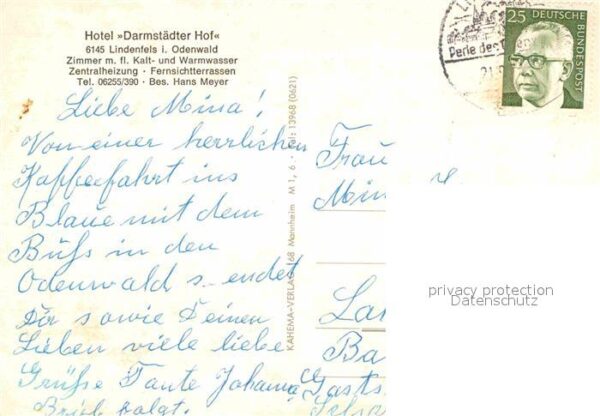 Hotel »Darmstädter Hof«
6145 Lindenfels i. Odenwald
Zimmer m. fl. Kalt- und Warmwasser
Zentralheizung · Fernsichtterrassen
Tel. 06255/390 · Bes. Hans Meyer
Liebe Mina!
Von einer herrlichen
Kaffeefahrt ins
Blaue mit dem
Buss in den
Odenwald sendet
Dir sowie Deinen
Lieben viele liebe
Grüße Tante Johanna
Brief folgt.
KAHEMA-VERLAG 68 Mannheim M 1, 6 · Tel: 13968 (0621)
25 DEUTSCHE
BUNDESPOST
Perle des
Frau
privacy protection
Datenschutz